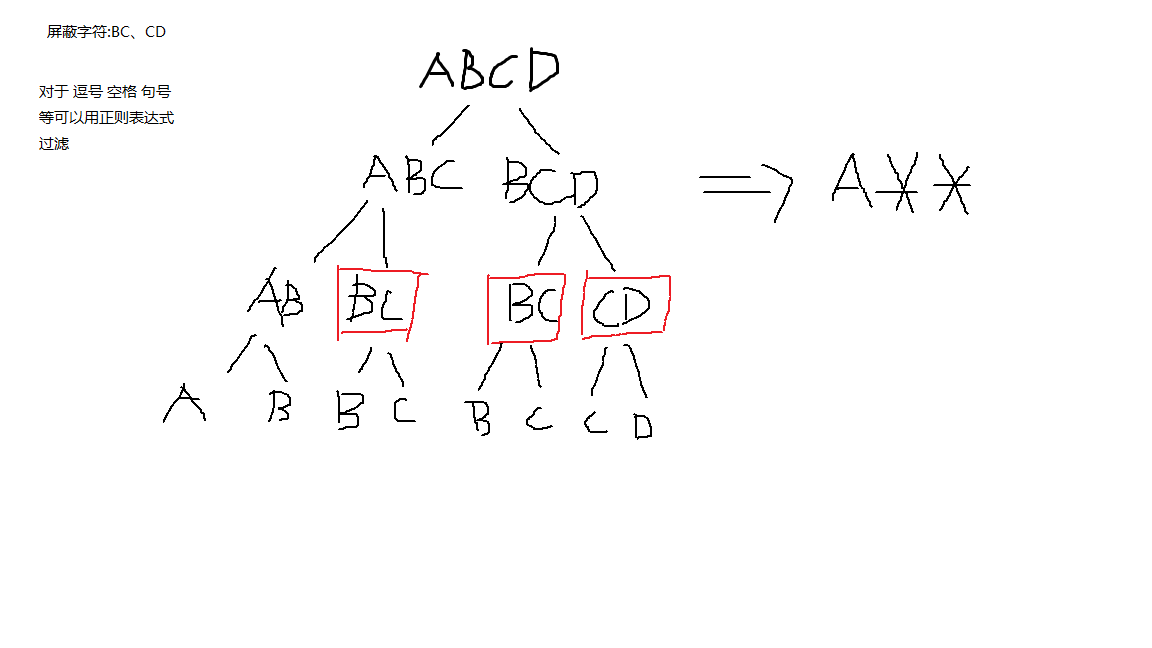 屏蔽字符:BC、CD
ABCD
对于 逗号 空格 句号
等可以用正则表达式
过滤
ABC BCD => A**
AB BC BC CD
A B B C B C C D